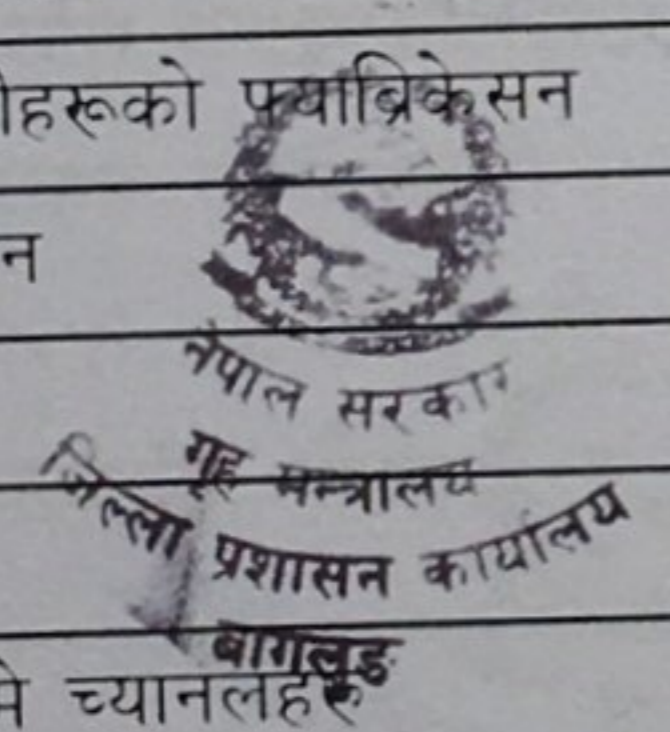 हरूको फ्याब्रिकेसन
न
नेपाल सरकार
गृह मन्त्रालय
जिल्ला प्रशासन कार्यालय
बागलुङ
च्यानलहरू